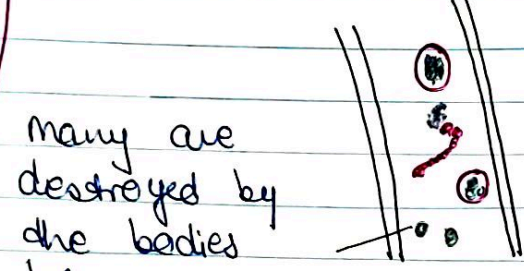 Many are
destroyed by
the bodies